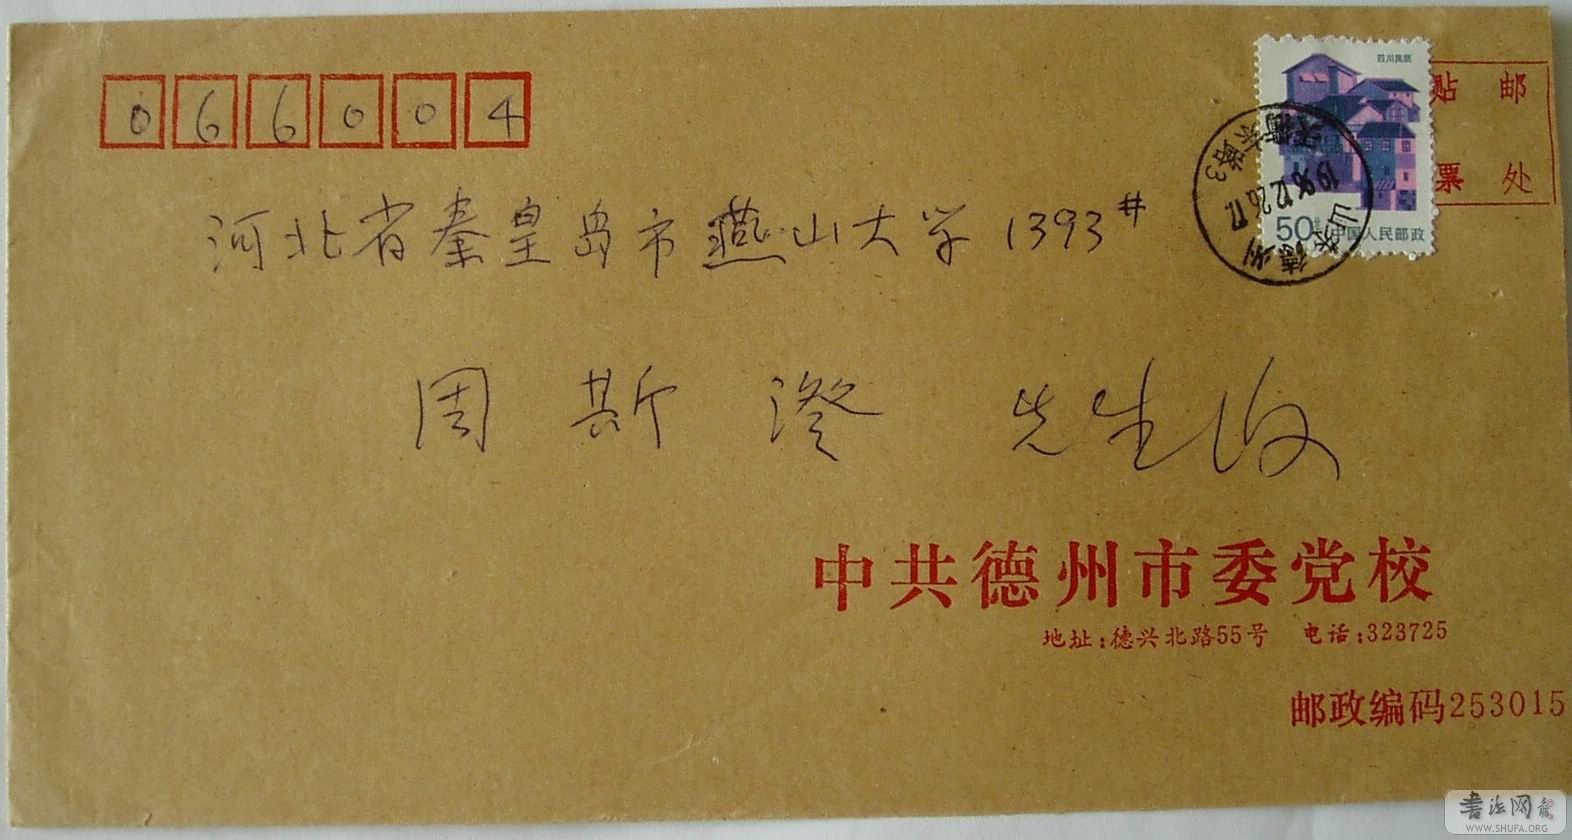 066004
贴 邮
票 处
四川民居
50分 中国人民邮政
山东德州
1996.12.26.17
河北省秦皇岛市燕山大学1393#
周斯澄 先生收
中共德州市委党校
地址:德兴北路55号 电话:323725
邮政编码253015
書法网
WWW.SHUFA.ORG